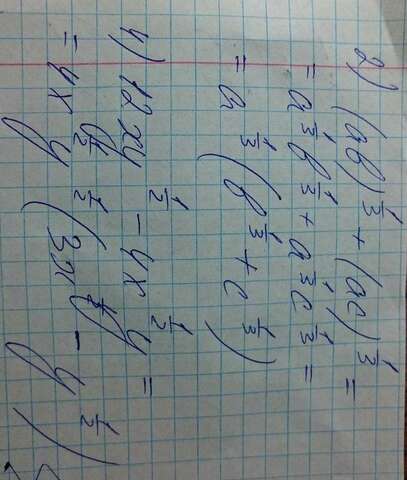 2) (ab)^{1/3} + (ac)^{1/3} =
= a^{1/3} b^{1/3} + a^{1/3} c^{1/3} =
= a^{1/3} (b^{1/3} + c^{1/3})
4) 12xy^{1/2} - 4x^{1/2}y =
= 4x^{1/2} y^{1/2} (3x^{1/2} - y^{1/2})